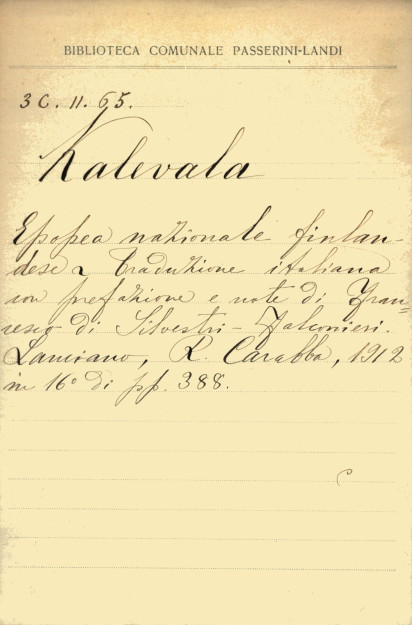 BIBLIOTECA COMUNALE PASSERINI-LANDI
3 C. 11. 65.
Kalevala
Epopea nazionale finlan-
dese ~ Traduzione italiana
con prefazione e note di Fran-
cesco di Silvestri-Falconieri.
Lanciano, R. Carabba, 1912
in 16° di pp. 388.